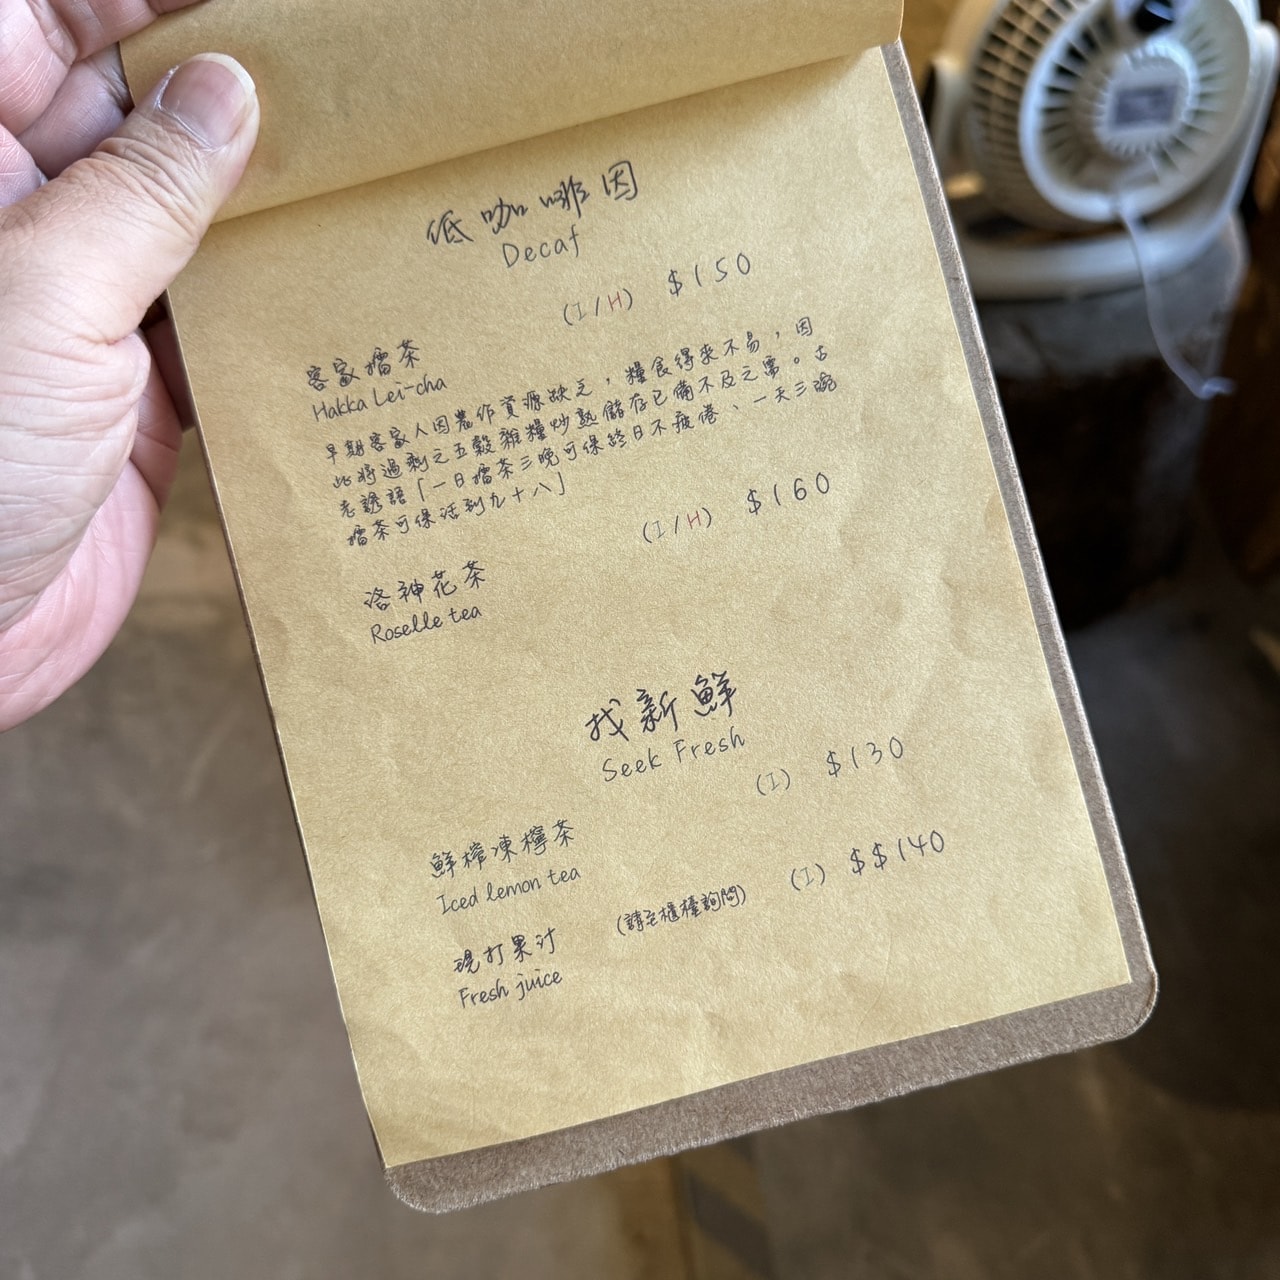 低咖啡因
Decaf
(I/H) $150
客家擂茶
Hakka Lei-cha
早期客家人因農作資源缺乏，糧食得來不易，因
此將過剩之五穀雜糧炒熟儲存已備不及之需。古
老諺語「一日擂茶三碗可保終日不疲倦、一天三碗
擂茶可保活到九十八」
(I/H) $160
洛神花茶
Roselle tea
找新鮮
Seek Fresh
(I) $130
鮮榨凍檸茶
Iced lemon tea
(請至櫃檯詢問) (I) $$140
現打果汁
Fresh juice